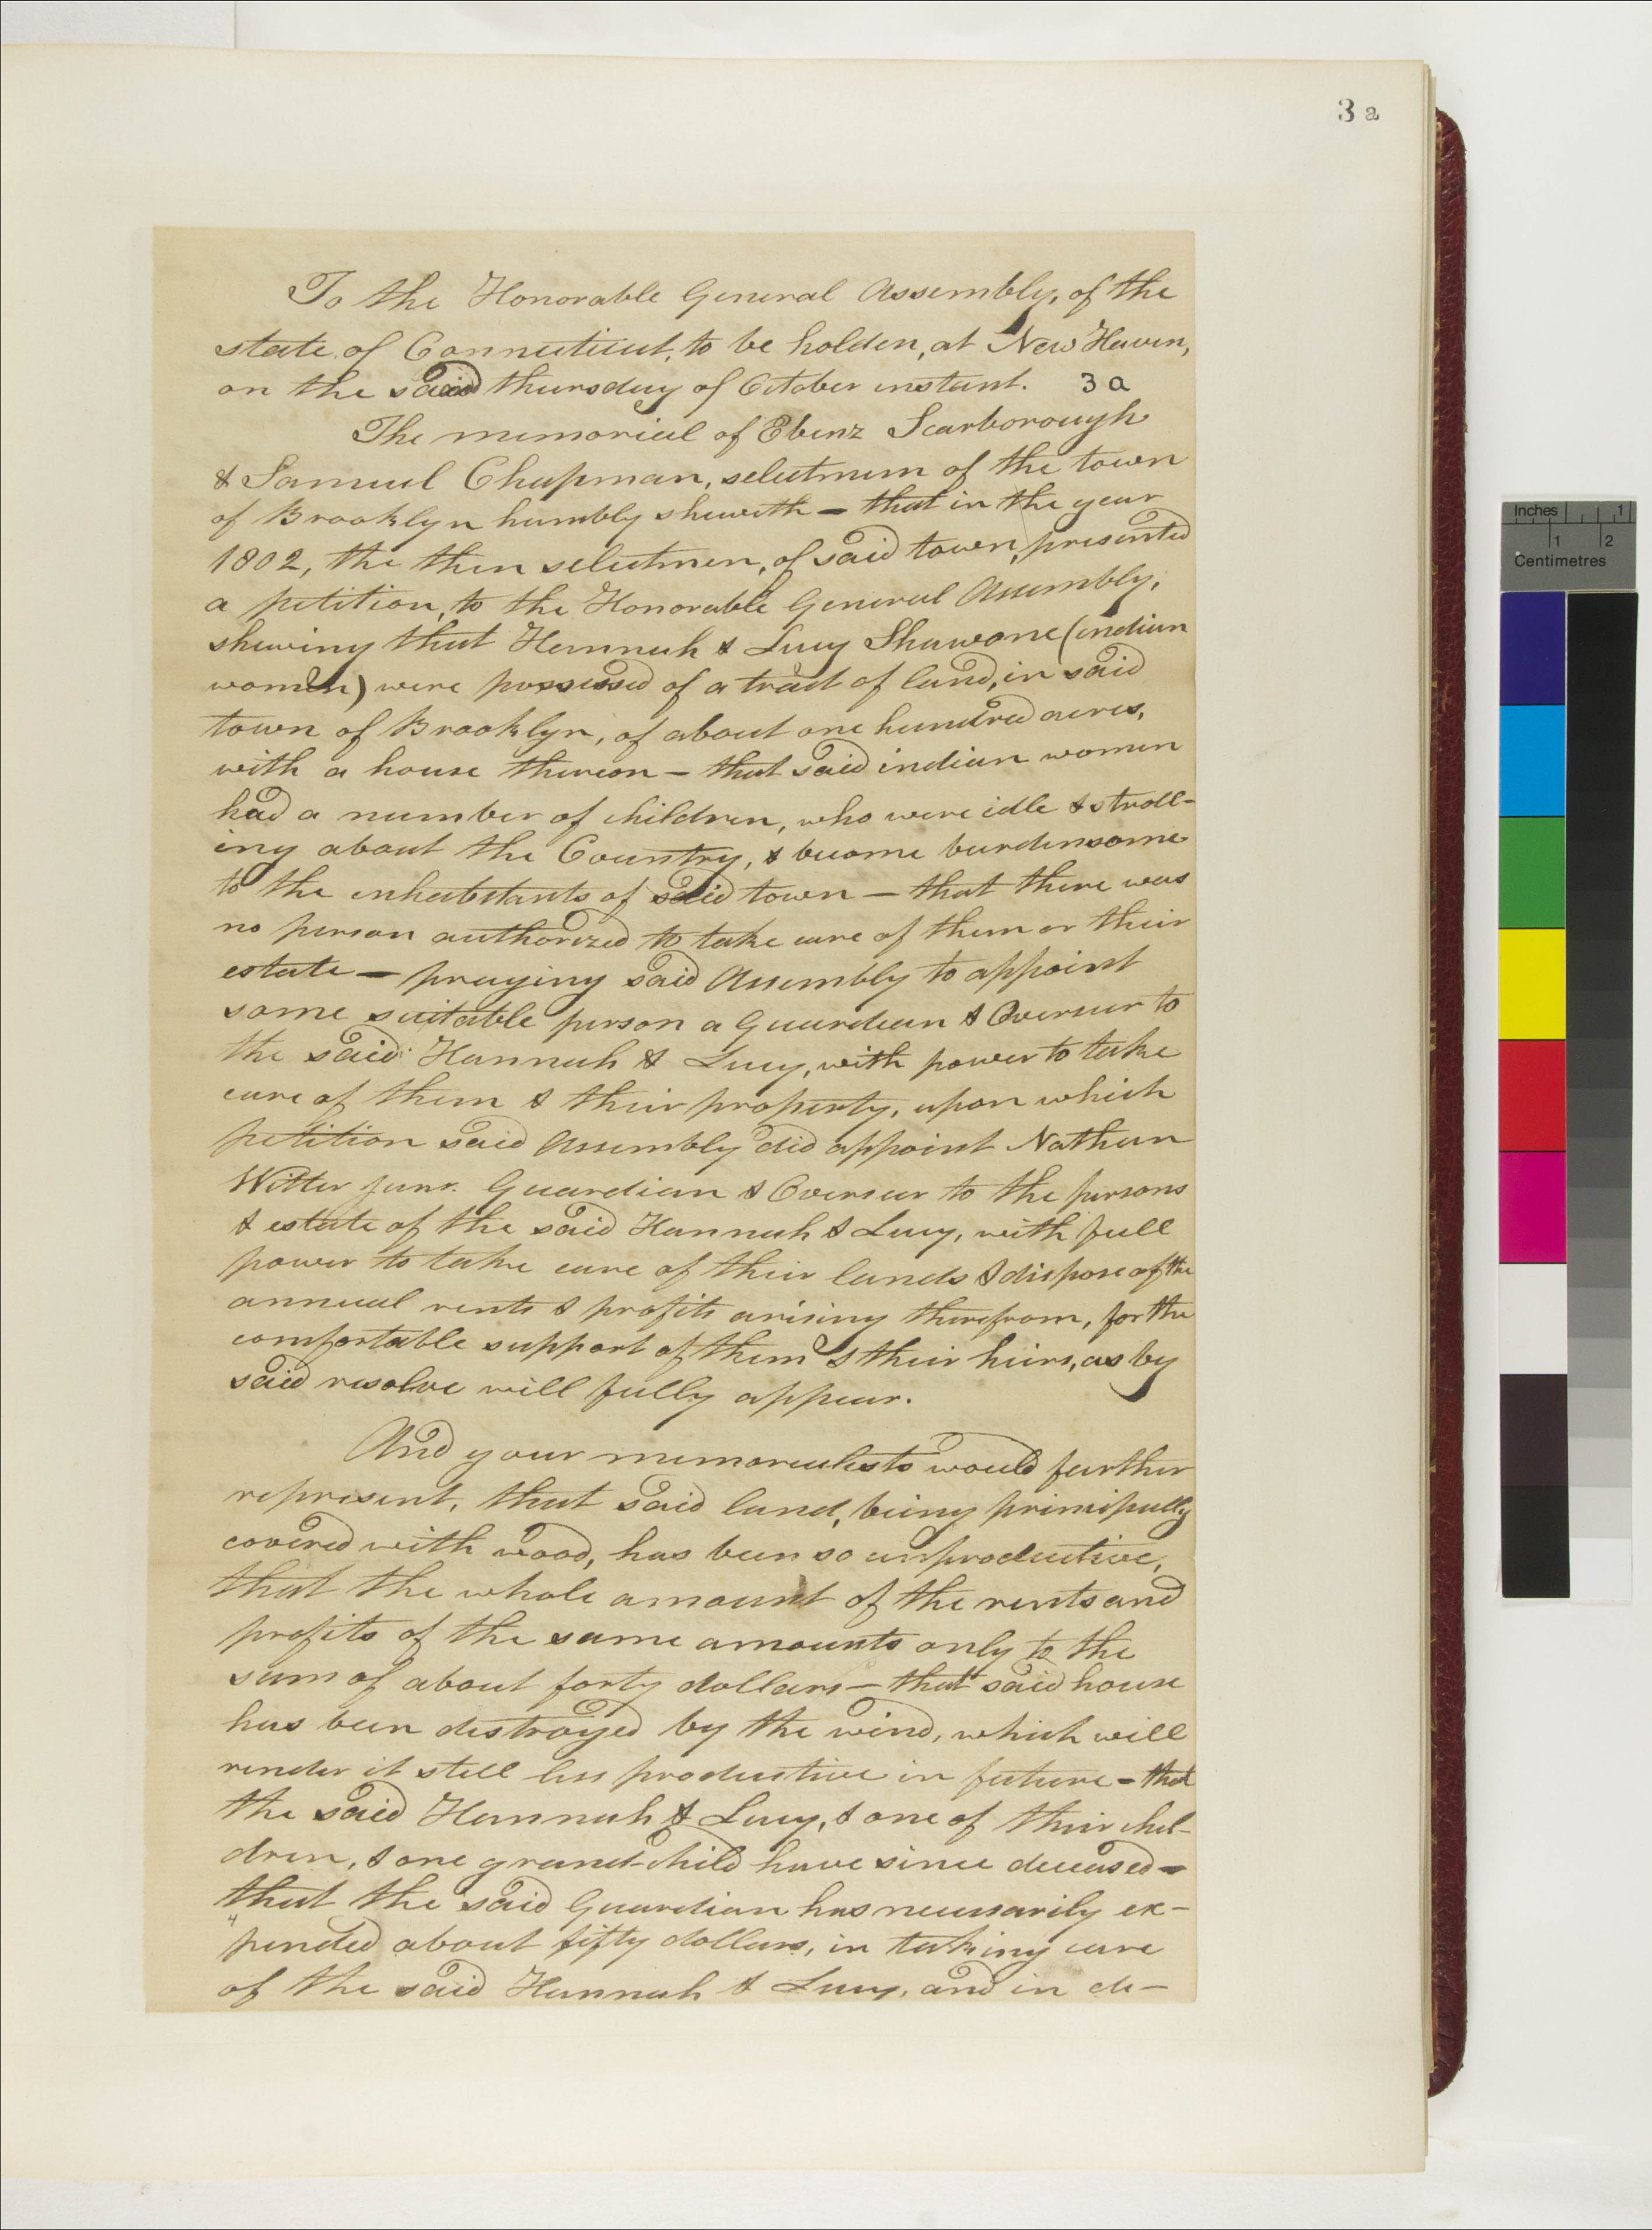 3 a
To the Honorable General Assembly, of the
state of Connecticut, to be holden, at New Haven,
on the said thursday of October instant. 3a
The memorial of Ebenz Scarborough
& Samuel Chapman, selectmen of the town
of Brooklyn humbly sheweth – that in the year
1802, the then selectmen, of said town, presented
a petition, to the Honorable General Assembly,
shewing that Hannah & Lucy Shawone (indian
women) were possessed of a tract of land, in said
town of Brooklyn, of about one hundred acres,
with a house thereon – that said indian women
had a number of children, who were idle & stroll-
ing about the Country, & become burdensome
to the inhabitants of said town – that there was
no person authorized to take care of them or their
estate – praying said Assembly to appoint
some suitable person a Guardian & Overseer to
the said Hannah & Lucy, with power to take
care of them & their property, upon which
petition said Assembly did appoint Nathan
Witter junr. Guardian & Overseer to the persons
& estate of the said Hannah & Lucy, with full
power to take care of their lands & dispose of the
annual rents & profits arising therefrom, for the
comfortable support of them & their heirs, as by
said resolve will fully appear.
And your memorialists would further
represent, that said land, being principally
covered with wood, has been so unproductive,
that the whole amount of the rents and
profits of the same amounts only to the
sum of about forty dollars – that said house
has been destroyed by the wind, which will
render it still less productive in future – that
the said Hannah & Lucy, & one of their chil-
dren, & one grand-child have since deceased –
that the said Guardian has necessarily ex-
"pended about fifty dollars, in taking care
of the said Hannah & Lucy, and in de-
Inches 1
1 2
Centimetres